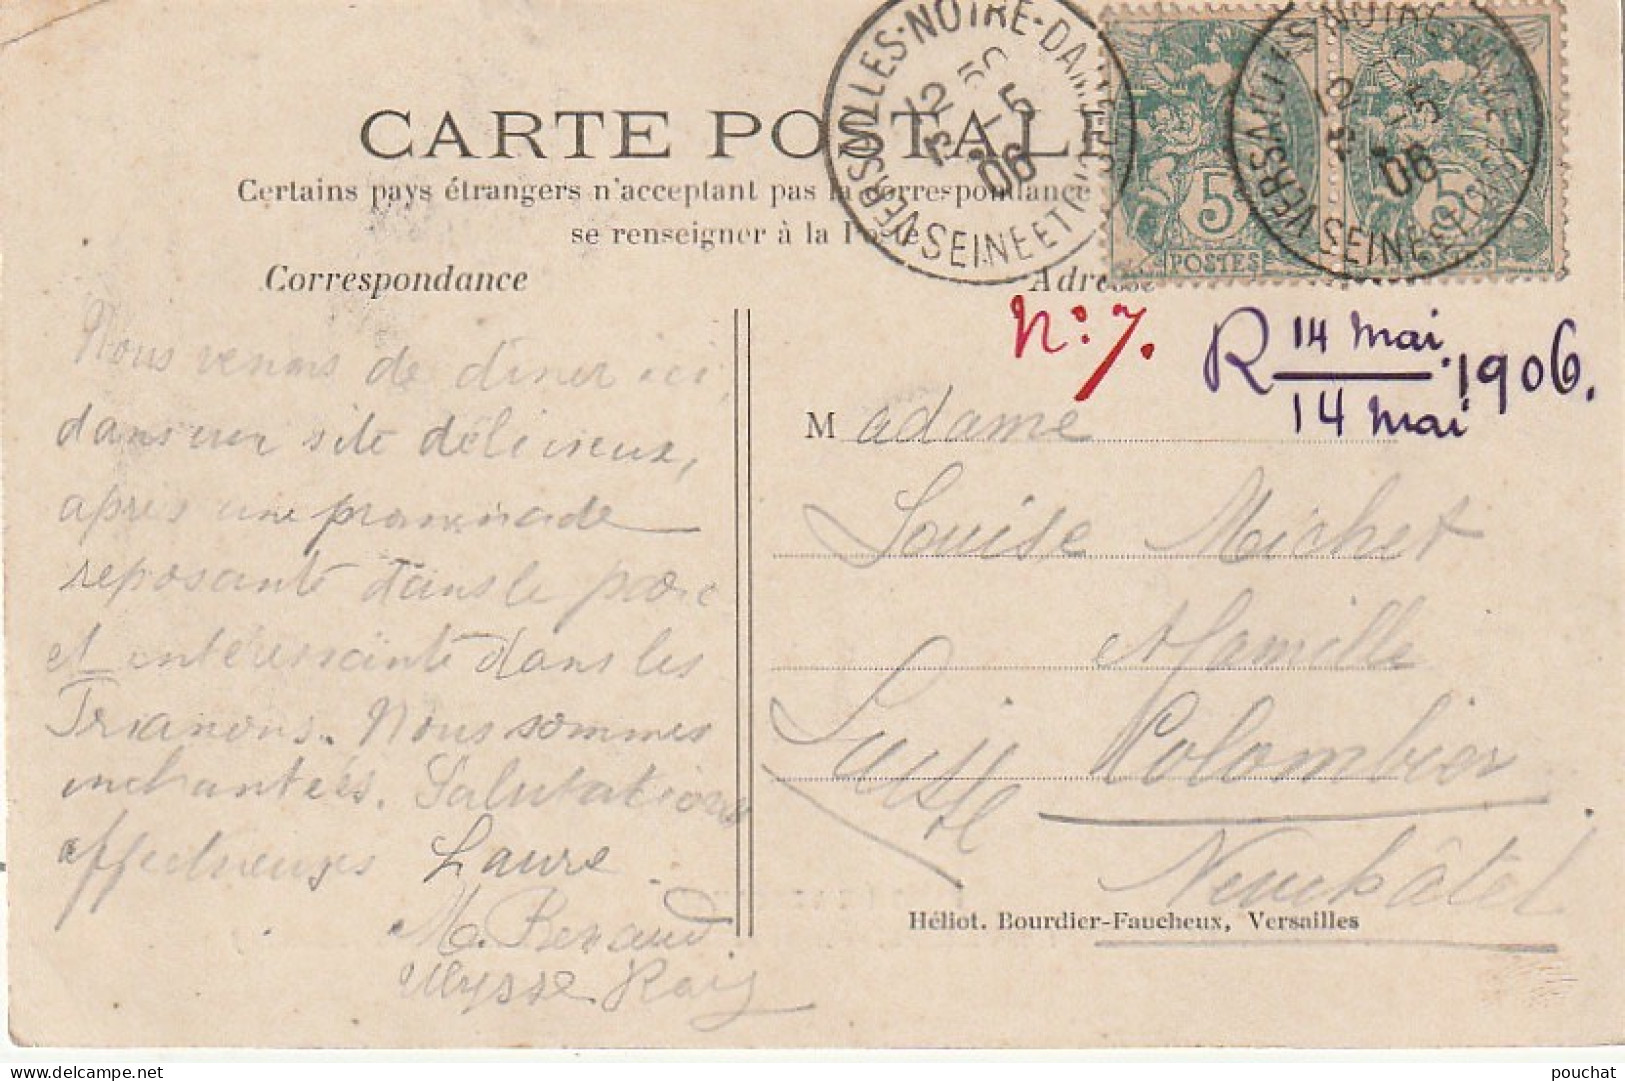 CARTE POSTALE
Certains pays étrangers n'acceptant pas la correspondance
se renseigner à la Poste
VERSAILLES-NOTRE-DAME
12 50
13 -5
06
SEINE ET OISE
5c
POSTES
VERSAILLES-NOTRE-DAME
12
-5
06
SEINE ET OISE
5
POSTES
Correspondance
Adresse
Nous venons de diner ici,
dans un site délicieux,
après une promenade
reposante dans le parc
et intéressante dans les
Trianons. Nous sommes
enchantées. Salutations
affectueuses Laure.
M. Renaud
Ulysse
No: 7.
R 14 mai 1906.
14 mai
Madame
Louise Michet
Mamille
Colombier
Suisse
Neuchâtel
Héliot. Bourdier-Faucheux, Versailles
delcampe.net
pouchat